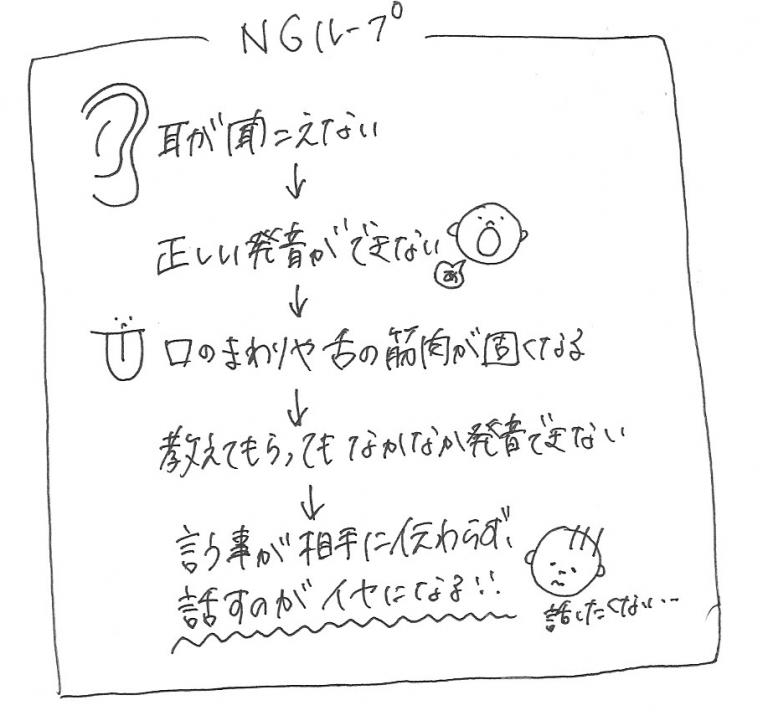 NGループ
耳が聞こえない
↓
正しい発音ができない
あ
↓
口のまわりや舌の筋肉が固くなる
↓
教えてもらってもなかなか発音できない
↓
言う事が相手に伝わらず、
話すのがイヤになる!!
話したくない…